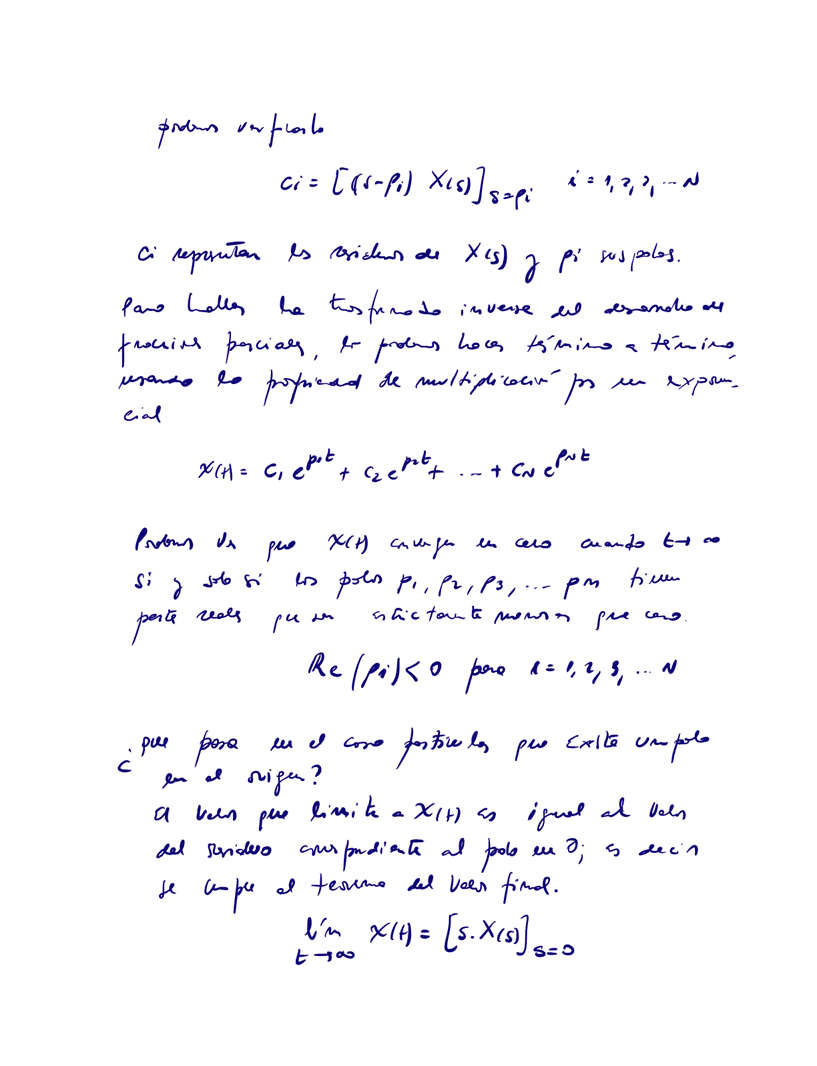 podemos verificarlo
ci = [(s-pi) X(s)]s=pi i = 1, 2, 3, ... N
ci representan los residuos de X(s) y pi sus polos.
Para hallar la trasformada inversa del desarrollo de
fracciones parciales, lo podemos hacer término a término,
usando la propiedad de multiplicación por un exponen-
cial
x(t) = c1 e^p1t + c2 e^p2t + ... + cN e^pNt
Podemos ver que x(t) converge en cero cuando t→∞
si y solo si los polos p1, p2, p3, ... pn tienen
parte reales que son estrictamente menores que cero.
Re(pi)<0 para i = 1, 2, 3, ... N
¿ que pasa en el caso particular que existe un polo
en el origen?
El valor que limite a x(t) es igual al valor
del residuo correspondiente al polo en 0; es decir
se cumple el teorema del valor final.
lím x(t) = [s.X(s)]s=0
t→∞